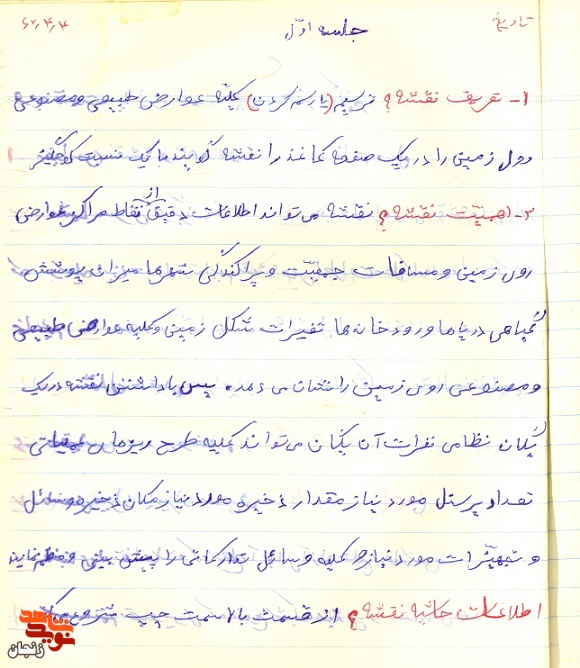 تاریخ ۶۲٫۴٫۴
جلسه اوّل
۱- تعریف نقشه؟ ترسیم (یا رسم کردن) کلیّه عوارض طبیعی و مصنوعی
روی زمین را در یک صفحه کاغذ را نقشه گویند با یک نسبت کوچکتر
۲- اهمیّت نقشه؟ نقشه می تواند اطلاعات دقیقی از نقاط مراکز عوارض
روی زمین و مسافات جمعیّت و پراکندگی شهرها میزان پوشش
گیاهی دریاها و رودخانه ها تغییرات شکل زمین و کلیه عوارض طبیعی
و مصنوعی روی زمین را نشان می دهد. پس با داشتن نقشه در یک
یگان نظامی نفرات آن یگان می تواند کلیه طرح ریزیهای عملیاتی
تعداد پرسنل مورد نیاز مقدار ذخیره مورد نیاز مکان ذخیره وسائل
و تجهیزات مورد نیاز و کلیه وسائل تدارکاتی را پیش بینی و منظم نماید
اطلاعات حاشیه نقشه؟ از قسمت بالا سمت چپ شروع
نوید شاهد
زنجان